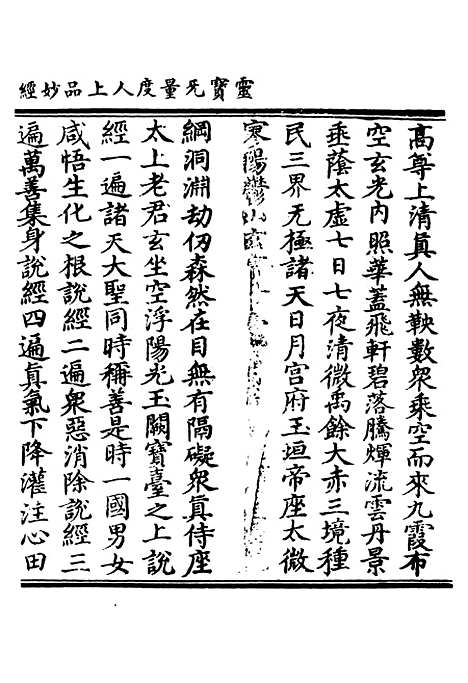 靈寶无量度人上品妙經
高尊上清真人無鞅數眾乘空而來九霞布
空玄光內照華蓋飛軒碧落騰輝流雲丹景
垂蔭太虛七日七夜清微禹餘大赤三境種
民三界无極諸天日月宮府玉垣帝座太微
寒陽鬱
綱洞淵劫仞森然在目無有隔礙眾真侍座
太上老君玄坐空浮陽光玉闕寶臺之上說
經一遍諸天大聖同時稱善是時一國男女
咸悟生化之根說經二遍眾惡消除說經三
遍萬善集身說經四遍真氣下降灌注心田